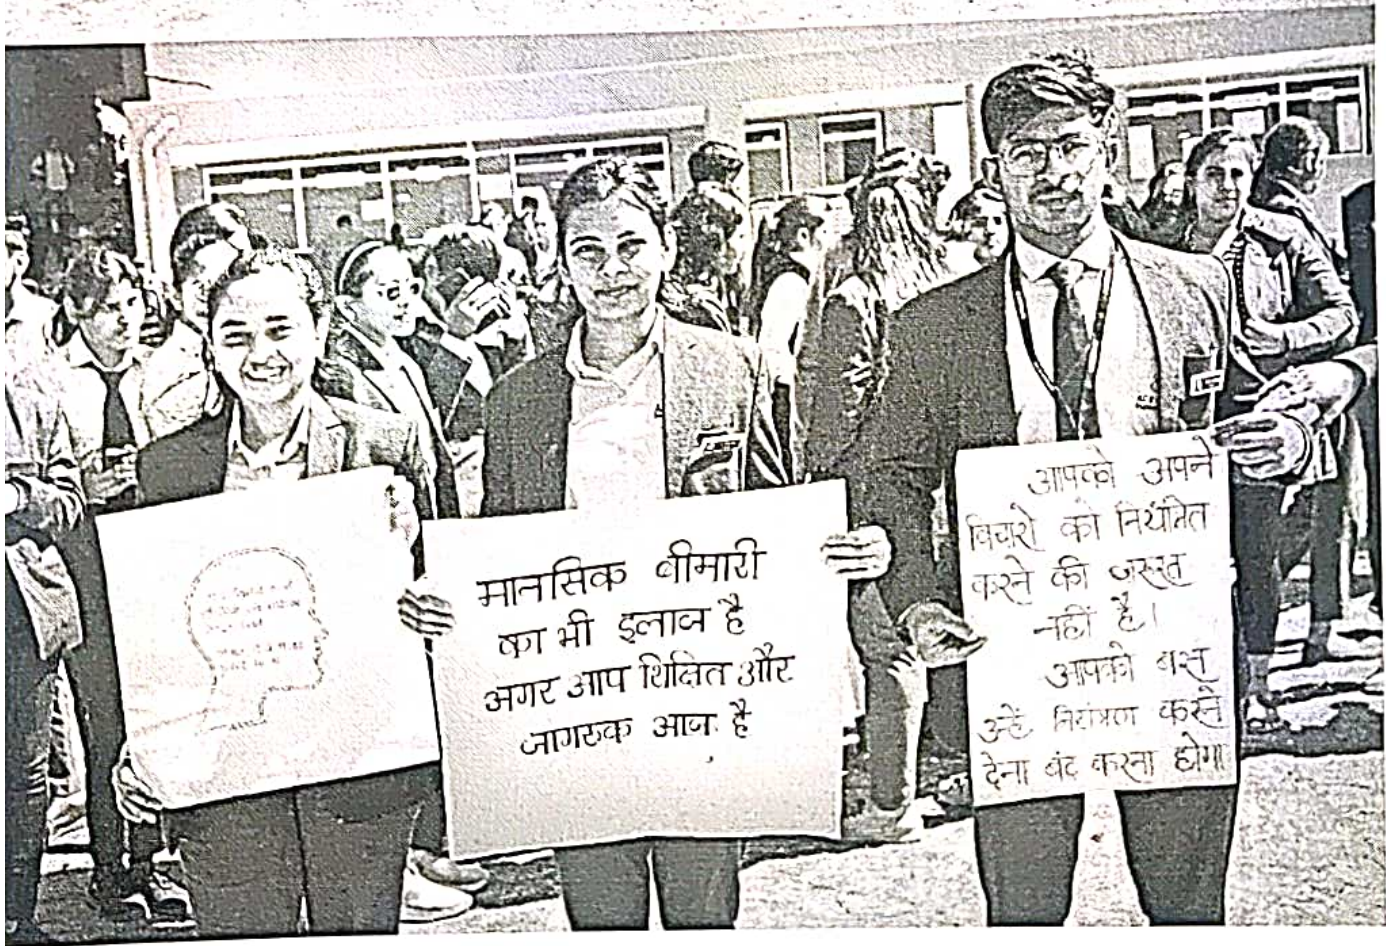 मानसिक बीमारी
का भी इलाज है
अगर आप शिक्षित और
जागरुक आज है
आपको अपने
विचारो को नियंत्रित
करने की जरूरत
नहीं है।
आपको बस
उन्हें नियंत्रण करने
देना बंद करना होगा